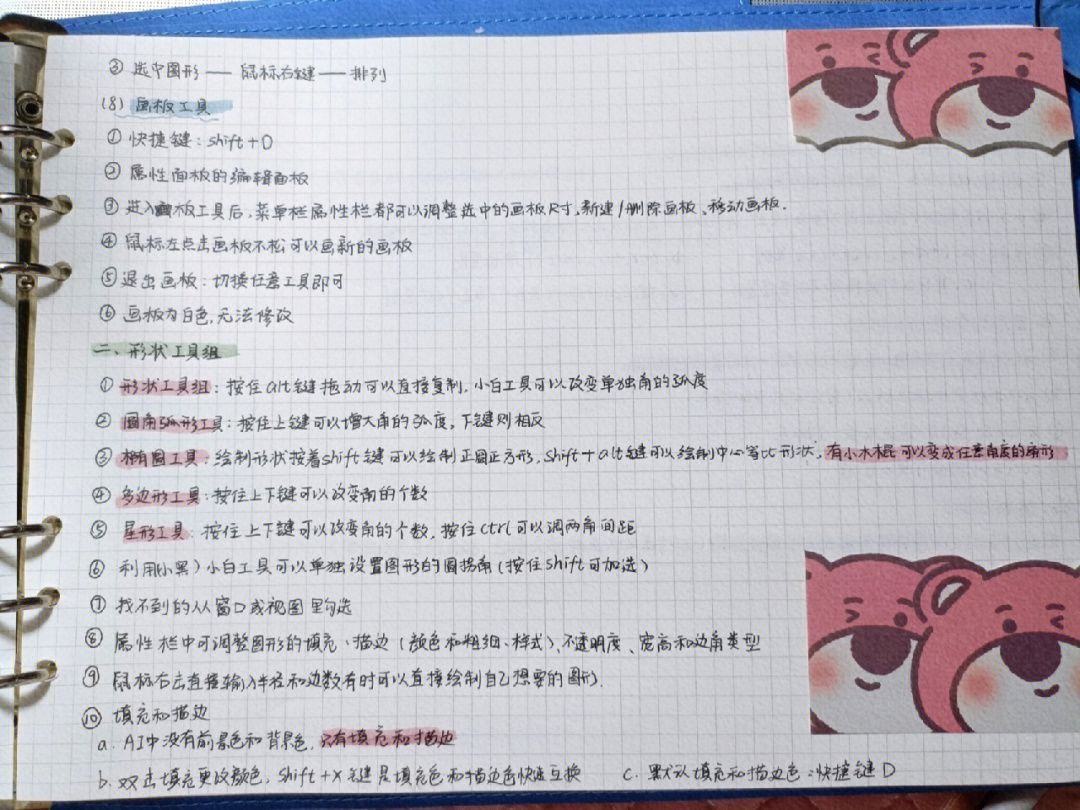 ③ 选中图形 —— 鼠标右键 —— 排列
(8) 画板工具
① 快捷键：shift + O
② 属性面板的编辑画板
③ 进入画板工具后，菜单栏属性栏都可以调整选中的画板尺寸、新建/删除画板、移动画板.
④ 鼠标左点击画板不松可以画新的画板
⑤ 退出画板：切换任意工具即可
⑥ 画板为白色，无法修改
二、形状工具组
① 形状工具组：按住alt键拖动可以直接复制，小白工具可以改变单独角的弧度
② 圆角弧形工具：按住上键可以增大角的弧度，下键则相反
③ 椭圆工具：绘制形状按着shift键可以绘制正圆正方形，shift + alt键可以绘制中心等比形状，有小木棍可以变成任意角度的扇形
④ 多边形工具：按住上下键可以改变角的个数
⑤ 星形工具：按住上下键可以改变角的个数，按住ctrl可以调两角间距
⑥ 利用(小黑)小白工具可以单独设置图形的圆拐角(按住shift可加选)
⑦ 找不到的从窗口或视图里勾选
⑧ 属性栏中可调整图形的填充、描边(颜色和粗细、样式)、不透明度、宽高和边角类型
⑨ 鼠标右击直接输入半径和边数有时可以直接绘制自己想要的图形.
⑩ 填充和描边
a. AI中没有前景色和背景色，只有填充和描边
b. 双击填充更改颜色，Shift+X键是填充色和描边色快速互换 c. 默认填充和描边色：快捷键D